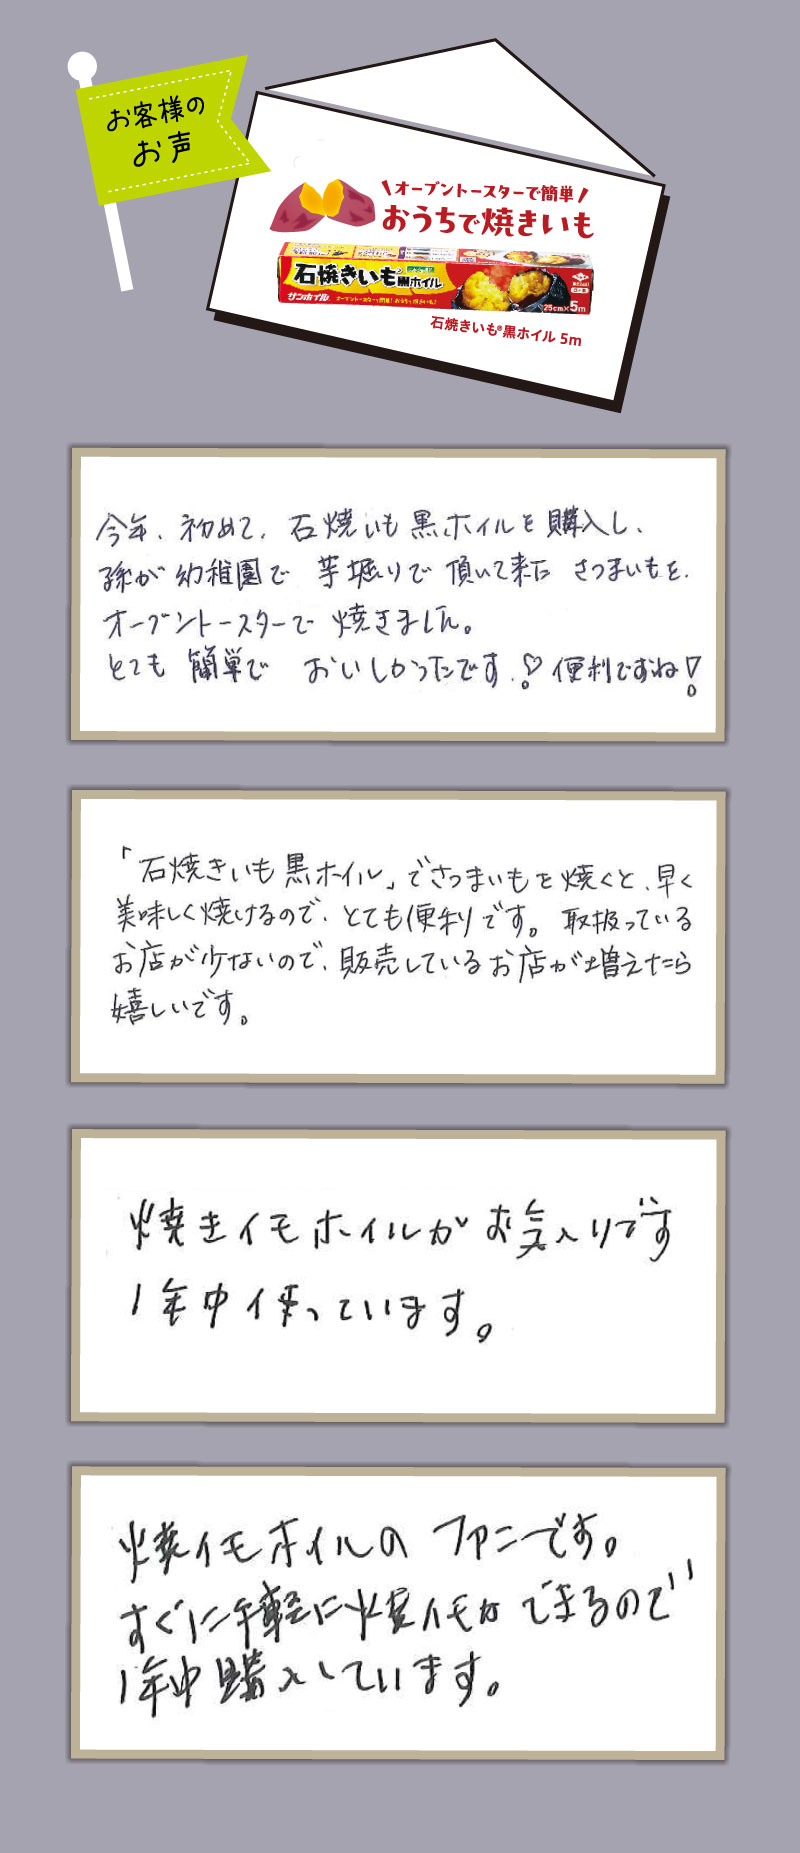 お客様の
お声
オーブントースターで簡単!
おうちで焼きいも
石焼きいも®黒ホイル
サンホイル
オーブントースターで簡単!おうちで焼きいも!
25cm×5m
石焼きいも®黒ホイル 5m
今年、初めて、石焼いも黒ホイルを購入し、
孫が幼稚園で 芋堀りで 頂いて来た さつまいもを、
オーブントースターで 焼きました。
とても 簡単で おいしかったです。♡ 便利ですね!
「石焼きいも黒ホイル」でさつまいもを焼くと、早く
美味しく焼けるので、とても便利です。取扱っている
お店が少ないので、販売しているお店が増えたら
嬉しいです。
焼きイモホイルがお気入りです
1年中使っています。
焼イモホイルの ファンです。
すぐに手軽に焼イモが できるので
1年中購入しています。